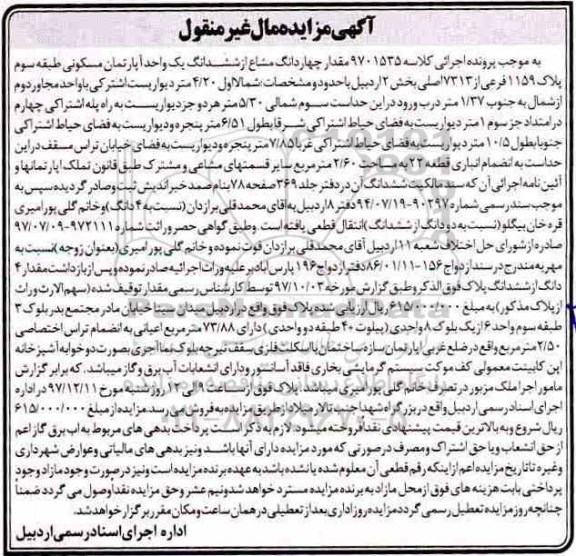 آگهی مزایده مال غیر منقول
به موجب پرونده اجرائی کلاسه ۹۷۰۱۵۳۵ مقدار چهار دانگ مشاع از ششدانگ یک واحد آپارتمان مسکونی طبقه سوم
پلاک ۱۱۵۹ فرعی از ۷۳۱۳ اصلی بخش ۲ اردبیل با حدود و مشخصات: شمالا اول ۴/۲۰ متر دیواریست اشتراکی با واحد مجاور دوم
از شمال به جنوب ۱/۳۷ متر درب ورود در این حد است سوم شمالی ۵/۳۰ متر هر دو جزء دیواریست به راه پله اشتراکی چهارم
در امتداد جزء سوم ۱ متر دیواریست به فضای حیاط اشتراکی شرقا بطول ۶/۵۱ متر پنجره و دیواریست به فضای حیاط اشتراکی
جنوبا بطول ۱۰/۵ متر دیواریست به فضای حیاط اشتراکی غربا ۷/۸۵ متر پنجره و دیواریست به فضای خیابان تراس مسقف در این
حد است به انضمام انباری قطعه ۲۲ به مساحت ۲/۶۰ متر مربع سایر قسمتهای مشاعی و مشترک طبق قانون تملک آپارتمانها و
آئین نامه اجرائی آن که سند مالکیت ششدانگ آن در دفتر جلد ۳۶۹ صفحه ۷۸ بنام صمد خیراندیش ثبت و صادر گردیده سپس به
موجب سند رسمی شماره ۹۰۲۹۷-۹۴/۰۷/۱۹ دفتر ۸ اردبیل به آقای محمدقلی برازدان (نسبت به ۴ دانگ) و خانم گلی پور امیری
قره خان بیگلو (نسبت به دو دانگ از ششدانگ) انتقال قطعی یافته است. وطبق گواهی حصر وراثت شماره ۹۷۲۱۱۱-۹۷/۰۷/۰۹
صادره از شورای حل اختلاف شعبه ۱۱ اردبیل آقای محمدقلی برازدان فوت نموده و خانم گلی پور امیری (بعنوان زوجه) نسبت به
مهریه مندرج در سند ازدواج ۱۵۶-۸۶/۰۱/۱۱ دفتر ازدواج ۱۹۶ پارس آباد بر علیه وراث اجرائیه صادر نموده و پس از بازداشت مقدار ۴
دانگ از ششدانگ پلاک فوق الذکر و طبق گزارش مورخه ۹۷/۱۰/۰۳ توسط کارشناس رسمی مقدار توقیف شده (سهم الارث وراث
از پلاک مذکور) به مبلغ ۶۱۵/۰۰۰/۰۰۰ ریال ارزیابی شده پلاک فوق واقع در اردبیل میدان بسیج خیابان مادر مجتمع بدر بلوک ۳
طبقه سوم واحد ۶ از یک بلوک ۸ واحدی (پیلوت +۴ طبقه دو واحدی) دارای ۷۳/۸۸ متر مربع اعیانی به انضمام تراس اختصاصی
۲/۵۰ متر مربع واقع در ضلع غربی آپارتمان سازه ساختمان با اسکلت فلزی سقف تیرچه بلوک نما آجری بصورت دو خوابه آشپزخانه
اپن کابینت معمولی کف موکت سیستم گرمایشی بخاری فاقد آسانسور و دارای انشعابات آب برق و گاز میباشد. که برابر گزارش
مامور اجرا ملک مزبور در تصرف خانم گلی پور امیری میباشد. پلاک فوق از ساعت ۹ الی ۱۲ روز شنبه مورخ ۹۷/۱۲/۱۱ در اداره
اجرای اسناد رسمی اردبیل واقع در بزرگراه شهدا جنب تالار میلاد از طریق مزایده به فروش می رسد مزایده از مبلغ ۶۱۵/۰۰۰/۰۰۰
ریال شروع و به بالاترین قیمت پیشنهادی نقدا فروخته میشود. لازم به ذکر است پرداخت بدهی های مربوط به آب برق گاز اعم
از حق انشعاب و یا حق اشتراک و مصرف در صورتی که مورد مزایده دارای آنها باشد و نیز بدهی های مالیاتی و عوارض شهرداری
و غیره تا تاریخ مزایده اعم از اینکه رقم قطعی آن معلوم شده یا نشده باشد به عهده برنده مزایده است و نیز در صورت وجود مازاد وجوه
پرداختی بابت هزینه های فوق از محل مازاد به برنده مزایده مسترد خواهد شد و نیم عشر و حق مزایده نقدا وصول می گردد ضمناً
چنانچه روز مزایده تعطیل رسمی گردد مزایده روز اداری بعد از تعطیلی در همان ساعت و مکان مقرر برگزار خواهد شد.
اداره اجرای اسناد رسمی اردبیل